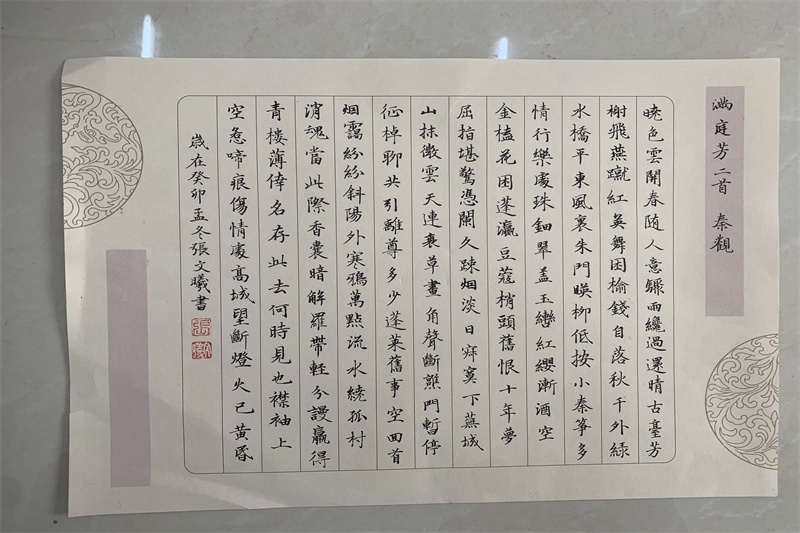 满庭芳二首 秦觀
曉色雲開春随人意驟雨纔過還晴古臺芳
榭飛燕蹴紅英舞困榆錢自落秋千外緑
水橋平東風裏朱門映柳低按小秦筝多
情行樂處珠鈿翠蓋玉轡紅纓漸酒空
金榼花困蓬瀛豆蔻梢頭舊恨十年夢
屈指堪驚憑闌久疎烟淡日寂寞下蕪城
山抹微雲天連衰草畫角聲斷譙門暫停
征棹聊共引離尊多少蓬萊舊事空回首
烟靄紛紛斜陽外寒鴉萬點流水繞孤村
消魂當此際香囊暗解羅帶輕分謾贏得
青楼薄倖名存此去何時見也襟袖上
空惹啼痕傷情處高城望斷燈火已黄昏
歲在癸卯孟冬張文曦書